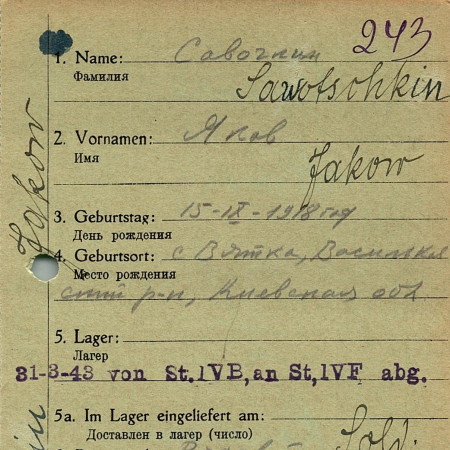 243
1. Name: Савочкин
Фамилия
Sawotschkin
2. Vornamen: Яков
Имя
Jakow
Jakow
3. Geburtstag: 15-IX-1918 год
День рождения
4. Geburtsort: с Вятка, Василька
Место рождения
ский р-н, Киевская обл.
5. Lager:
Лагерь
31-3-43 von St.IVB, an St,IVF abg.
5a. Im Lager eingeliefert am:
Доставлен в лагерь (число)
Sold.